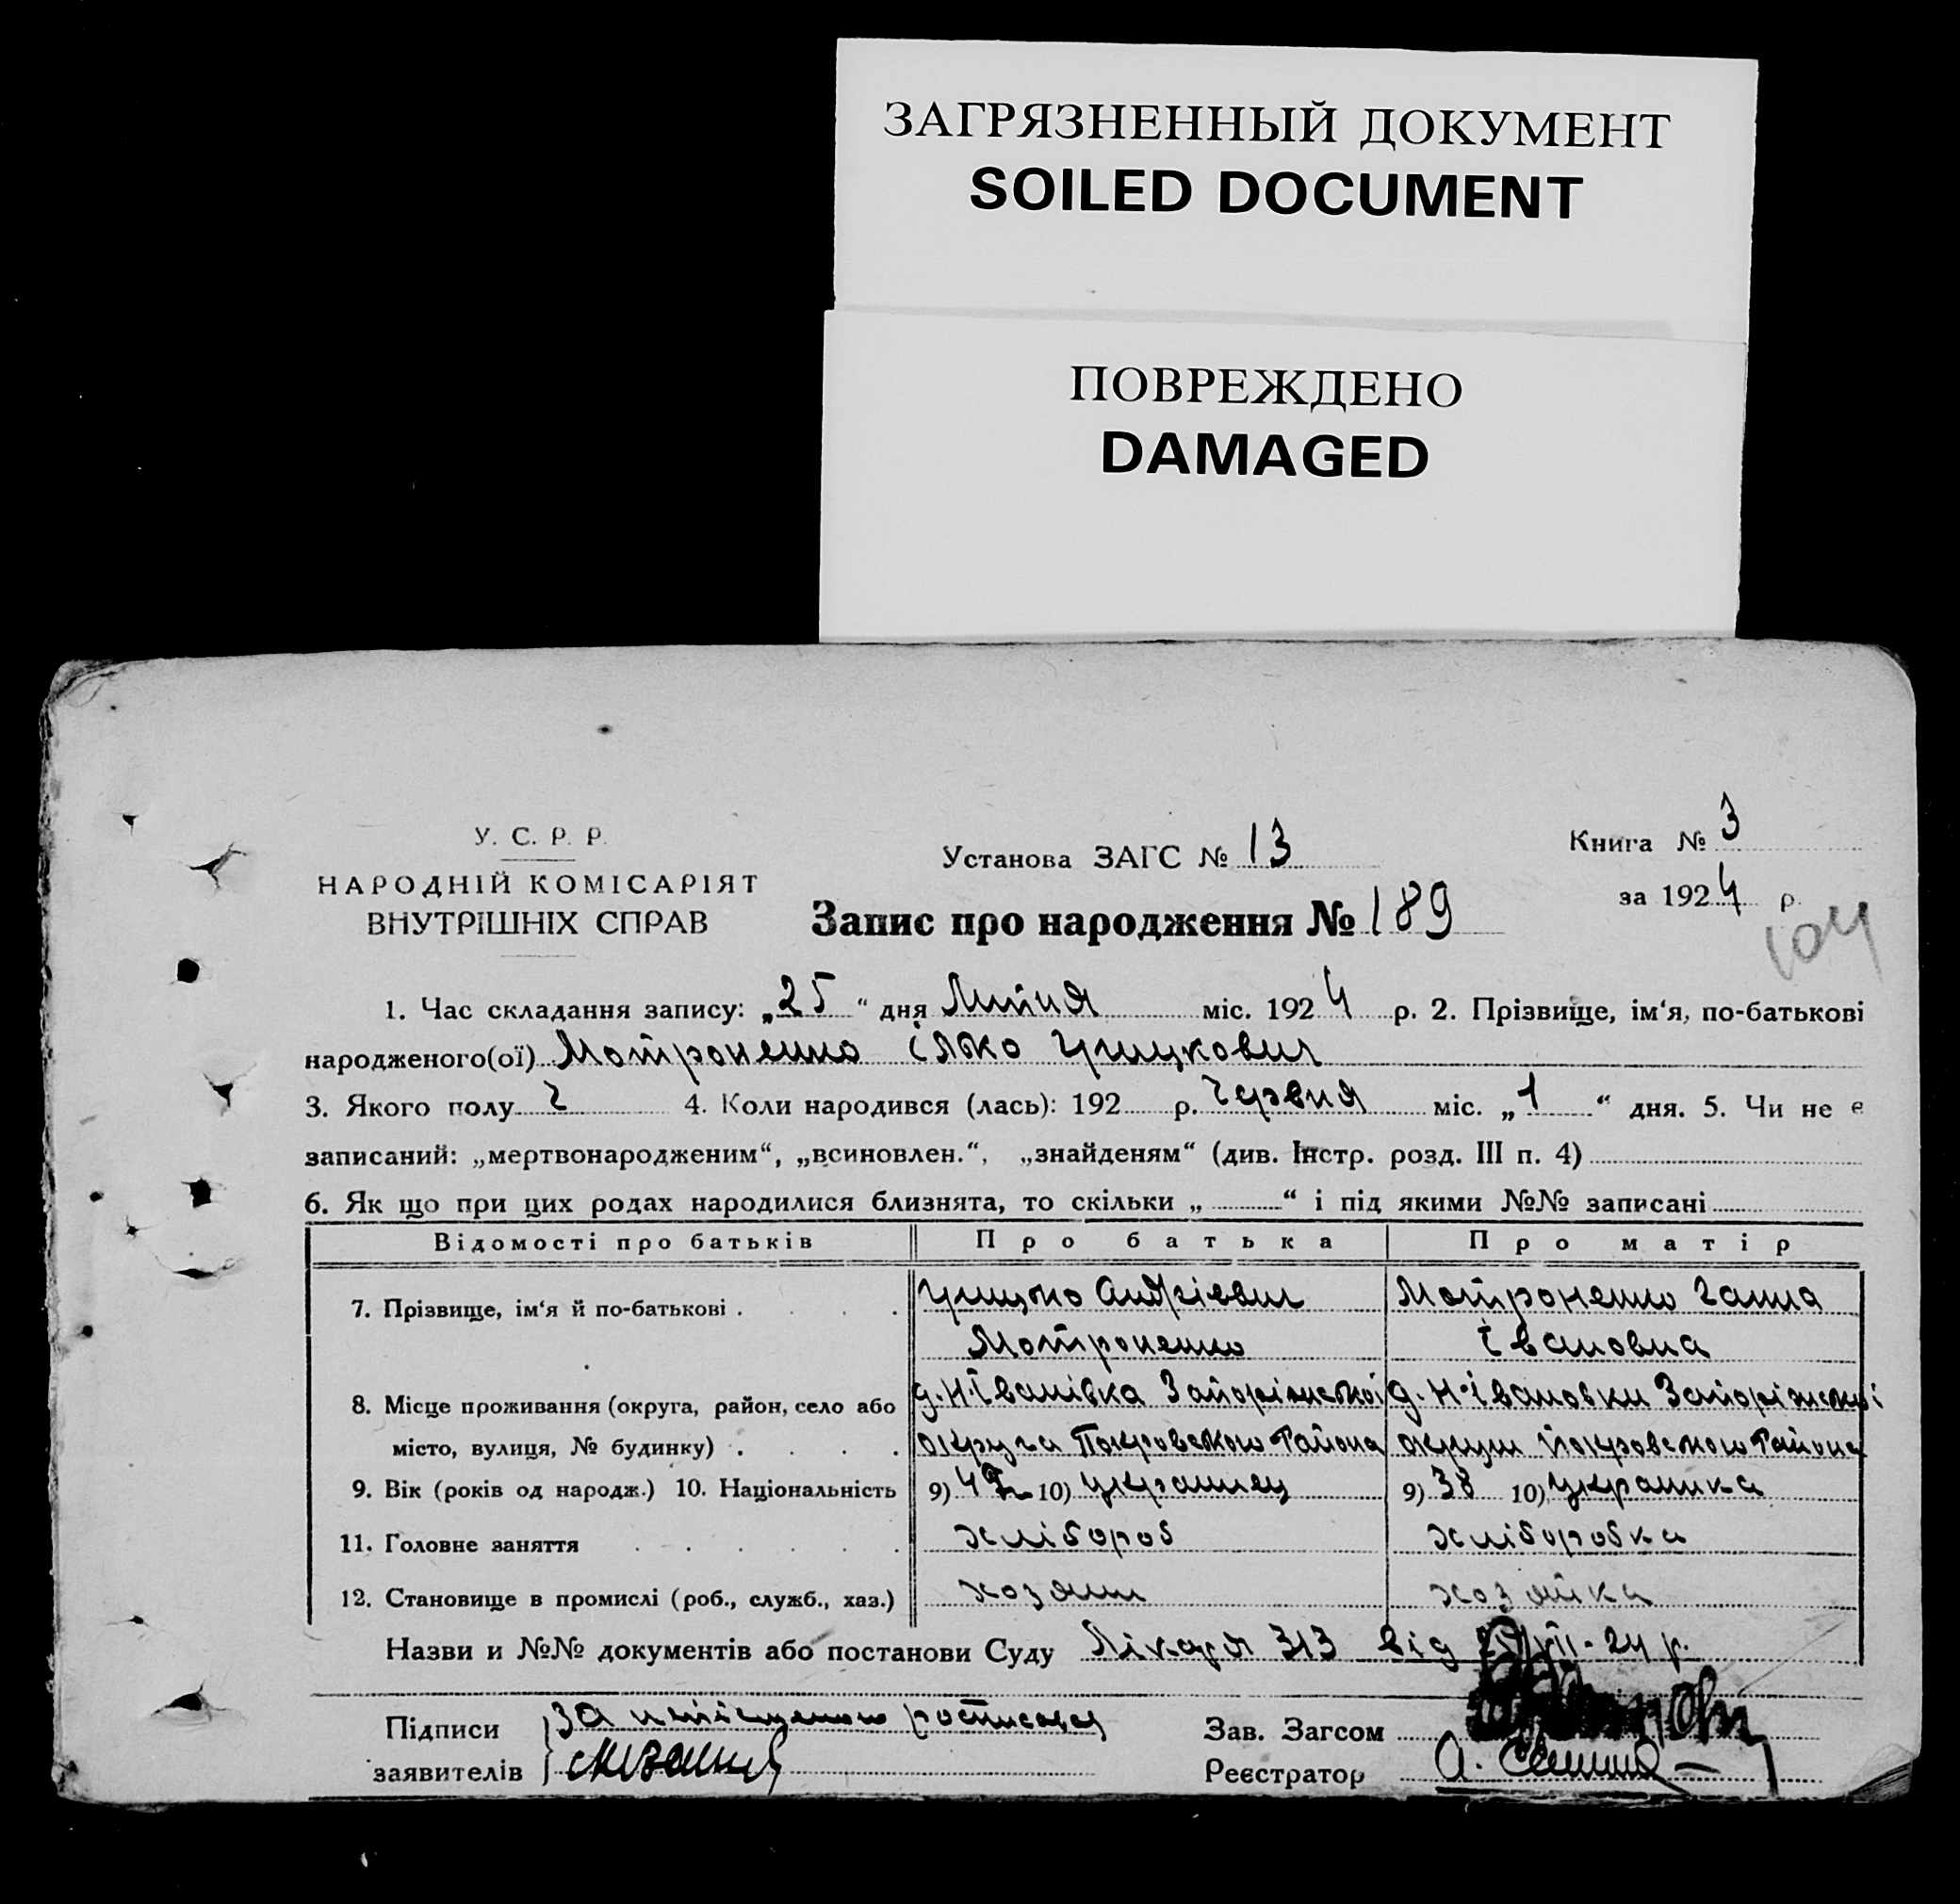 ЗАГРЯЗНЕННЫЙ ДОКУМЕНТ
SOILED DOCUMENT
ПОВРЕЖДЕНО
DAMAGED
У. С. Р. Р.
НАРОДНІЙ КОМІСАРІЯТ
ВНУТРІШНІХ СПРАВ
Установа ЗАГС № 13
Запис про народження № 189
Книга № 3
за 1924 р.
104
1. Час складання запису: „25“ дня Липня міс. 1924 р. 2. Прізвище, ім‘я, по-батькові
народженого(ої) Мотроненко Грицкович
3. Якого полу ч 4. Коли народився (лась): 192 р. Червня міс. „1“ дня. 5. Чи не є
записаний: „мертвонародженим“, „всиновлен.“, „знайденям“ (див. Інстр. розд. III п. 4)
6. Як що при цих родах народилися близнята, то скільки „ “ і під якими №№ записані
Відомості про батьків Про батька Про матір
7. Прізвище, ім‘я й по-батькові Грицько Андрієвич Мотроненко Ганна
Мотроненко Івановна
8. Місце проживання (округа, район, село або д. Н-Іванівка Запоріжської д. Н-Івановки Запоріжської
місто, вулиця, № будинку) округа Покровського Района округи Покровського Района
9. Вік (років од народж.) 10. Національність 9) 10) Украинец 9) 38 10) Украинка
11. Головне заняття хлібороб хлібробка
12. Становище в промислі (роб., служб., хаз.) хозяин хозяйка
Назви и №№ документів або постанови Суду Лікаря 313 від VII-24 р.
Підписи За росписався
заявителів
Зав. Загсом
Реєстратор А.